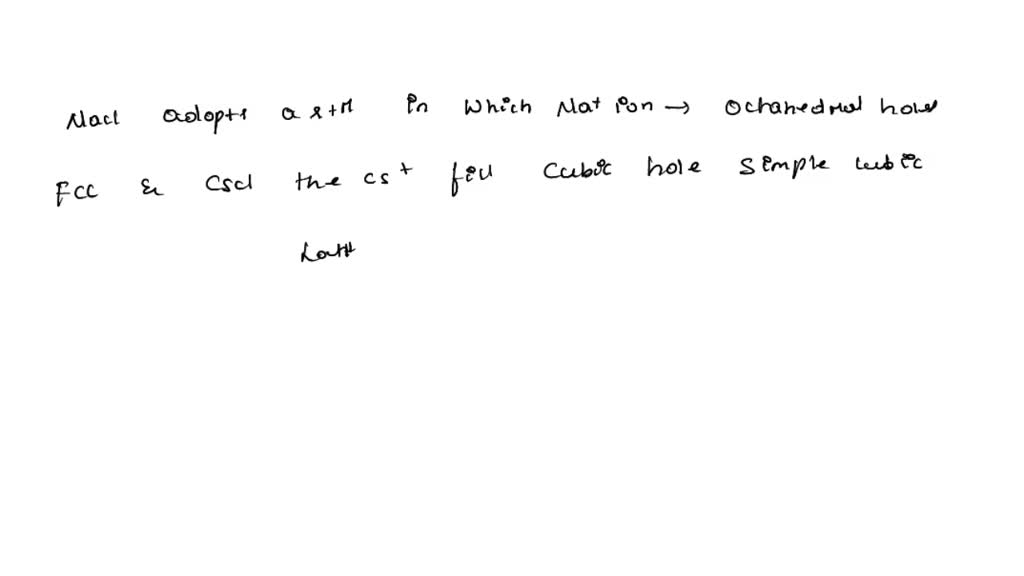 Nacl adopts a str in which Na+ ion → Octahedral holes
Fcc & Cscl the cs+ fill Cubic hole simple cubic
Latt